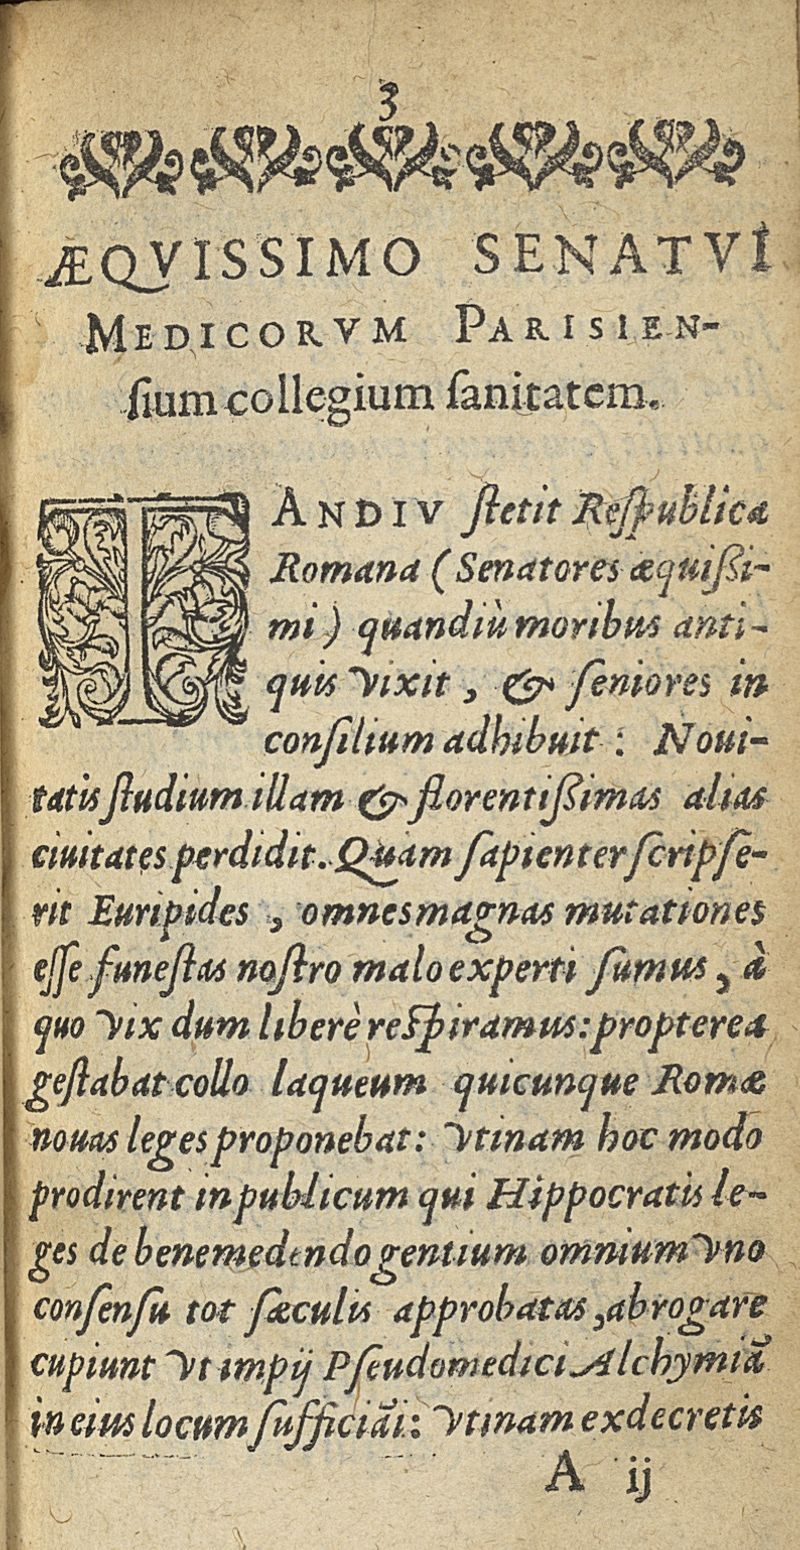 3
ÆQVISSIMO SENATVI
MEDICORVM PARISIEN-
ſium collegium ſanitatem.
TANDIV ſtetit Reſpublica
Romana (Senatores æquiſſi-
mi) quandiù moribus anti-
quis vixit, & ſeniores in
conſilium adhibuit: Noui-
tatis ſtudium illam & florentiſſimas alias
ciuitates perdidit. Quam ſapienter ſcripſe-
rit Euripides, omnes magnas mutationes
eſſe funeſtas noſtro malo experti ſumus, à
quo vix dum liberè reſpiramus: propterea
geſtabat collo laqueum quicunque Romæ
nouas leges proponebat: vtinam hoc modo
prodirent in publicum qui Hippocratis le-
ges de bene medendo gentium omnium vno
conſenſu tot ſæculis approbatas, abrogare
cupiunt vt impij Pſeudomedici Alchymiã
in eius locum ſufficiãt: vtinam ex decretis
A ij